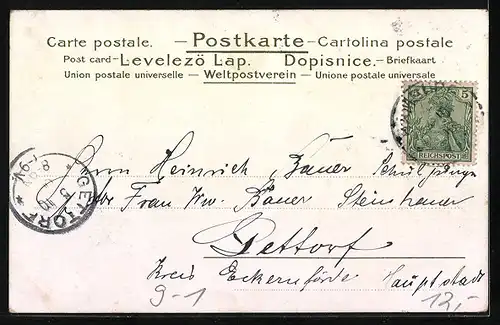 Carte postale. — Postkarte — Cartolina postale
Post card — Levelező Lap. Dopisnice. — Briefkaart
Union postale universelle — Weltpostverein — Unione postale universale
5
REICHSPOST
Heinrich Bauer
Frau Ww. Bauer Steinhauer
GETTORF
Gettorf
Kreis Eckernförde Hauptstadt
9-1
12,-